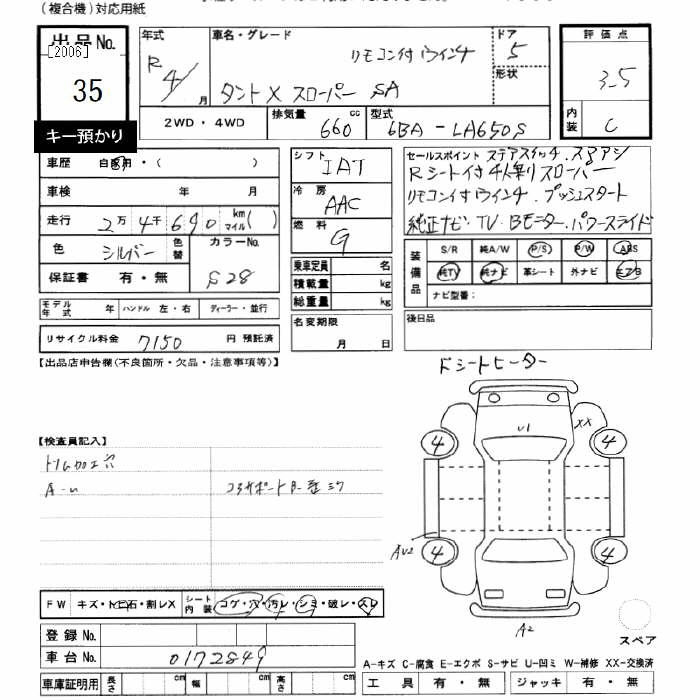 (複合機)対応用紙
出品No.
[2006]
35
キー預かり
年式
R4/
月
車名・グレード
リモコン付ウインチ
タントX スローパー SA
ドア
5
形状
評価点
3.5
内装
C
2WD・4WD
排気量
660
cc
型式
6BA-LA650S
車歴
自家用・( )
車検
年 月
走行
2万4千690
km
マイル
( )
色
シルバー
色替
カラーNo.
S28
保証書
有・無
モデル年式
年
ハンドル 左・右
ディーラー・並行
リサイクル料金
7150
円 預託済
シフト
IAT
冷房
AAC
燃料
G
乗車定員
名
積載量
kg
総重量
kg
名変期限
月 日
セールスポイント
ステアスイッチ.スマアシ
Rシート付4人乗りスローパー
リモコン付ウインチ.プッシュスタート
純正ナビ・TV.Bモニター.パワースライド
装備品
S/R
純A/W
P/S
P/W
ABS
純TV
純ナビ
革シート
外ナビ
エアB
ナビ型番:
後日品
【出品店申告欄(不良箇所・欠品・注意事項等)】
ドシートヒーター
【検査員記入】
トリム加工穴
A-U
コアサポート
FW
キズ・トビ石・割レX
シート内装
コゲ・穴・汚レ・シミ・破レ・スレ
登録No.
車台No.
0172849
車庫証明用
長さ
cm
幅
cm
高さ
cm
U1
XX
4
4
4
4
AU2
A2
スペア
A-キズ C-腐食 E-エクボ S-サビ U-凹ミ W-補修 XX-交換済
工具
有・無
ジャッキ
有・無